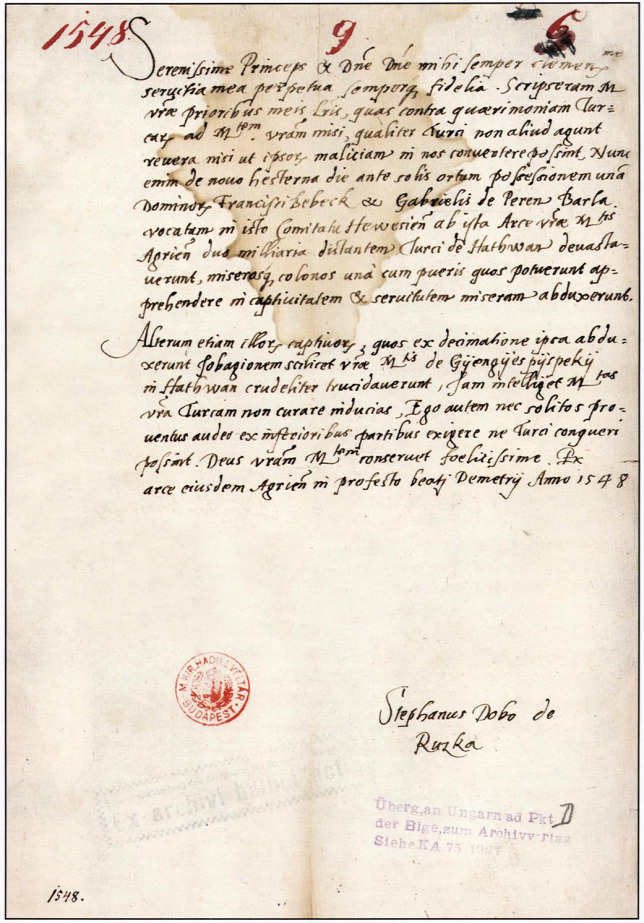 1548. 9 6
Serenissime Princeps & Dne Dne mihi semper clemenme
servitia mea perpetua semperq; fidelia. Scripseram M
vrae prioribus meis Lris, quas contra quaerimoniam Tur=
car, ad Mtem. vram misi, qualiter Turci non aliud agunt
revera nisi ut ipsor maliciam in nos convertere possint, Nunc
enim de novo hesterna die ante solis ortum possessionem una
Dominor Francisci Bebeck & Gabrielis de Peren Barla
vocatam in isto Comitatu Hewesien ab ista Arce vrae Mtis
Agrien duo milliaria distantem Turci de Hathwan devasta=
verunt, miserosq; colonos una cum pueris quos potuerunt ap=
prehendere in captivitatem & servitutem miseram abduxerunt.
Alterum etiam illor captivor, quos ex decimatione ipsa abdu=
xerunt Jobagionem scilicet vrae Mtis de Gyengyes pyspeky
in Hathwan crudeliter trucidaverunt, Jam intelliget Mtas
vra Turcam non curare inducias, Ego autem nec solitos pro=
ventus audeo ex inferioribus partibus exigere ne Turci conqueri
possint. Deus vram Mtem conservet foelicissime. Ex
arce eiusdem Agrien in profesto beati Demetrij Anno 1548
Stephanus Dobo de
Ruzka
M. KIR. HADILEVÉLTÁR
BUDAPEST
Ex archivi
Überg,an Ungarn ad Pkt D
der Blge,zum Archivvertag
Siehe KA 75 1927
1548.